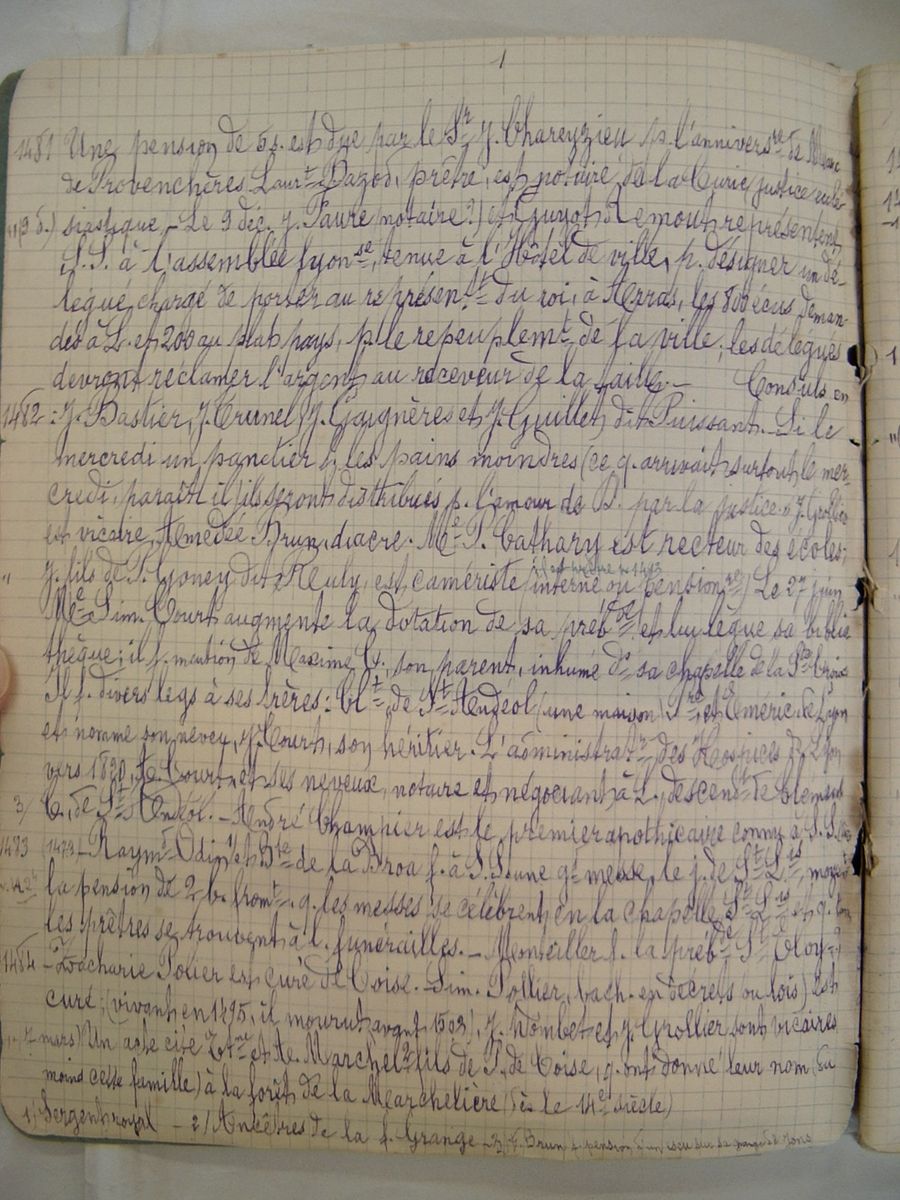 1
1481 Une pension de 5s. est due par le Sr J. Chareyzieu p. l'anniversre de Marc
de Provenchères. Laurt Dazod, prêtre, est notaire de la Curie justice ecclé
siastique. - Le 9 déc. J. Faure notaire 2) et Guyot Remout représentent
S.S. à l'assemblée lyonse, tenue à l'Hôtel de ville, p. désigner un dé-
légué chargé de porter au représentt du roi, à Arras, les 800 écus deman-
dés à L. et 200 au plat pays, p. le repeuplemt de la ville; les délégués
devront réclamer l'argent au receveur de la taille. - Consuls en
1482 : J. Bastier, J. Crunel, J. Gaignères et J. Guillet dit Puissant. - Si le
mercredi un panetier f. les pains moindres (ce q. arrivait surtout le mer-
credi, paraît il) ils seront distribués p. l'amour de D. par la justice. J. Grollier
est vicaire, Amédée Brun, diacre. Me P. Cathary est recteur des écoles;
J. fils de P. Goney dit Reuly, est camériste (interne ou pensionre) Le 27 juin
Me Sim. Court augmente la dotation de sa prébde et lui lègue sa biblio
thèque; il f. mention de Maxime C., son parent, inhumé ds sa chapelle de la Ste Croix
Il f. divers legs à ses frères: Clt de St Andéol, une maison, Pre et Eméric de Lyon
et nomme son neveu, J. Court, son héritier. L'administratr des Hospices de Lyon
vers 1820, A. Court et ses neveux, notaire et négociant à L. descendt de Clément
3) C. de St Andéol. - André Champier est le premier apothicaire connu à S.S.
1483 (1473 - Raymd Odin) et Bse de la Broa f. à S.S. une gde messe, le j. de St Ls, moyent
la pension de 2 b. fromt. q. les messes se célèbrent en la chapelle St Ls et q. tous
les prêtres se trouvent à l. funérailles. - Monteiller f. la prébde St Eloy
1484 - Zacharie Polier est curé de Coise. Sim. Pollier, bach. en décrets ou lois) est
curé; (vivant en 1495, il mourut avant 1503) J. Nombet et J. Grollier sont vicaires
mars) Un acte cite et A. Marchel fils de P. de Coise, q. ont donné leur nom (du
moins cette famille) à la forêt de la Marchelière (dès le 14e siècle)
1) Sergent royal - 2) Ancêtres de la f. Grange - 3) Brun f. pension d'un écu sur sa grange de